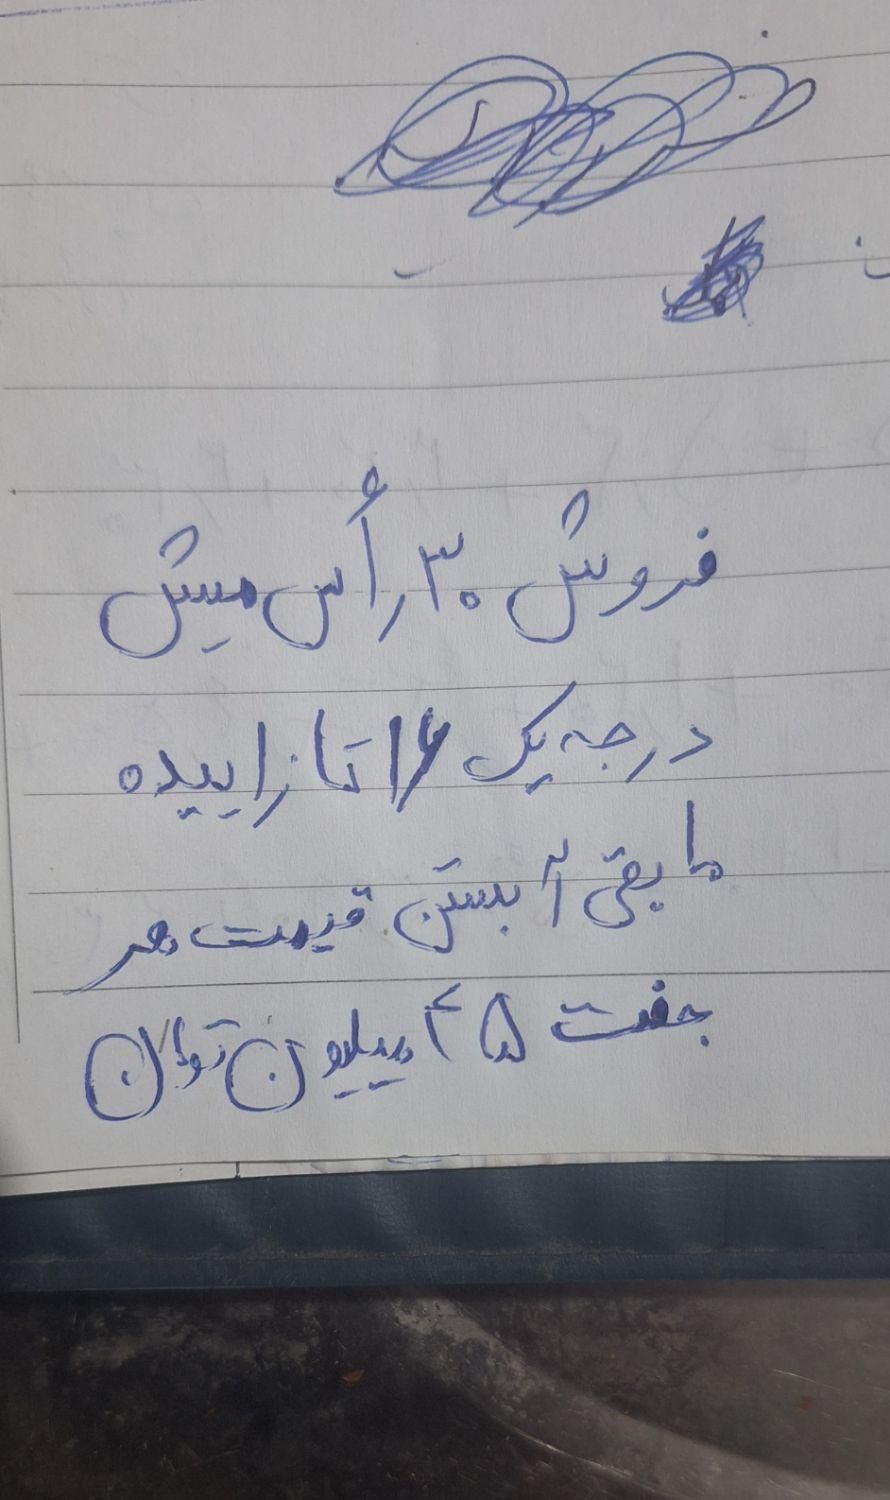 فروش ۳۰ رأس میش
درجه یک ۱۶ تا زاییده
مابقی آبستن قیمت هر
جفت ۴۵ میلیون تومان